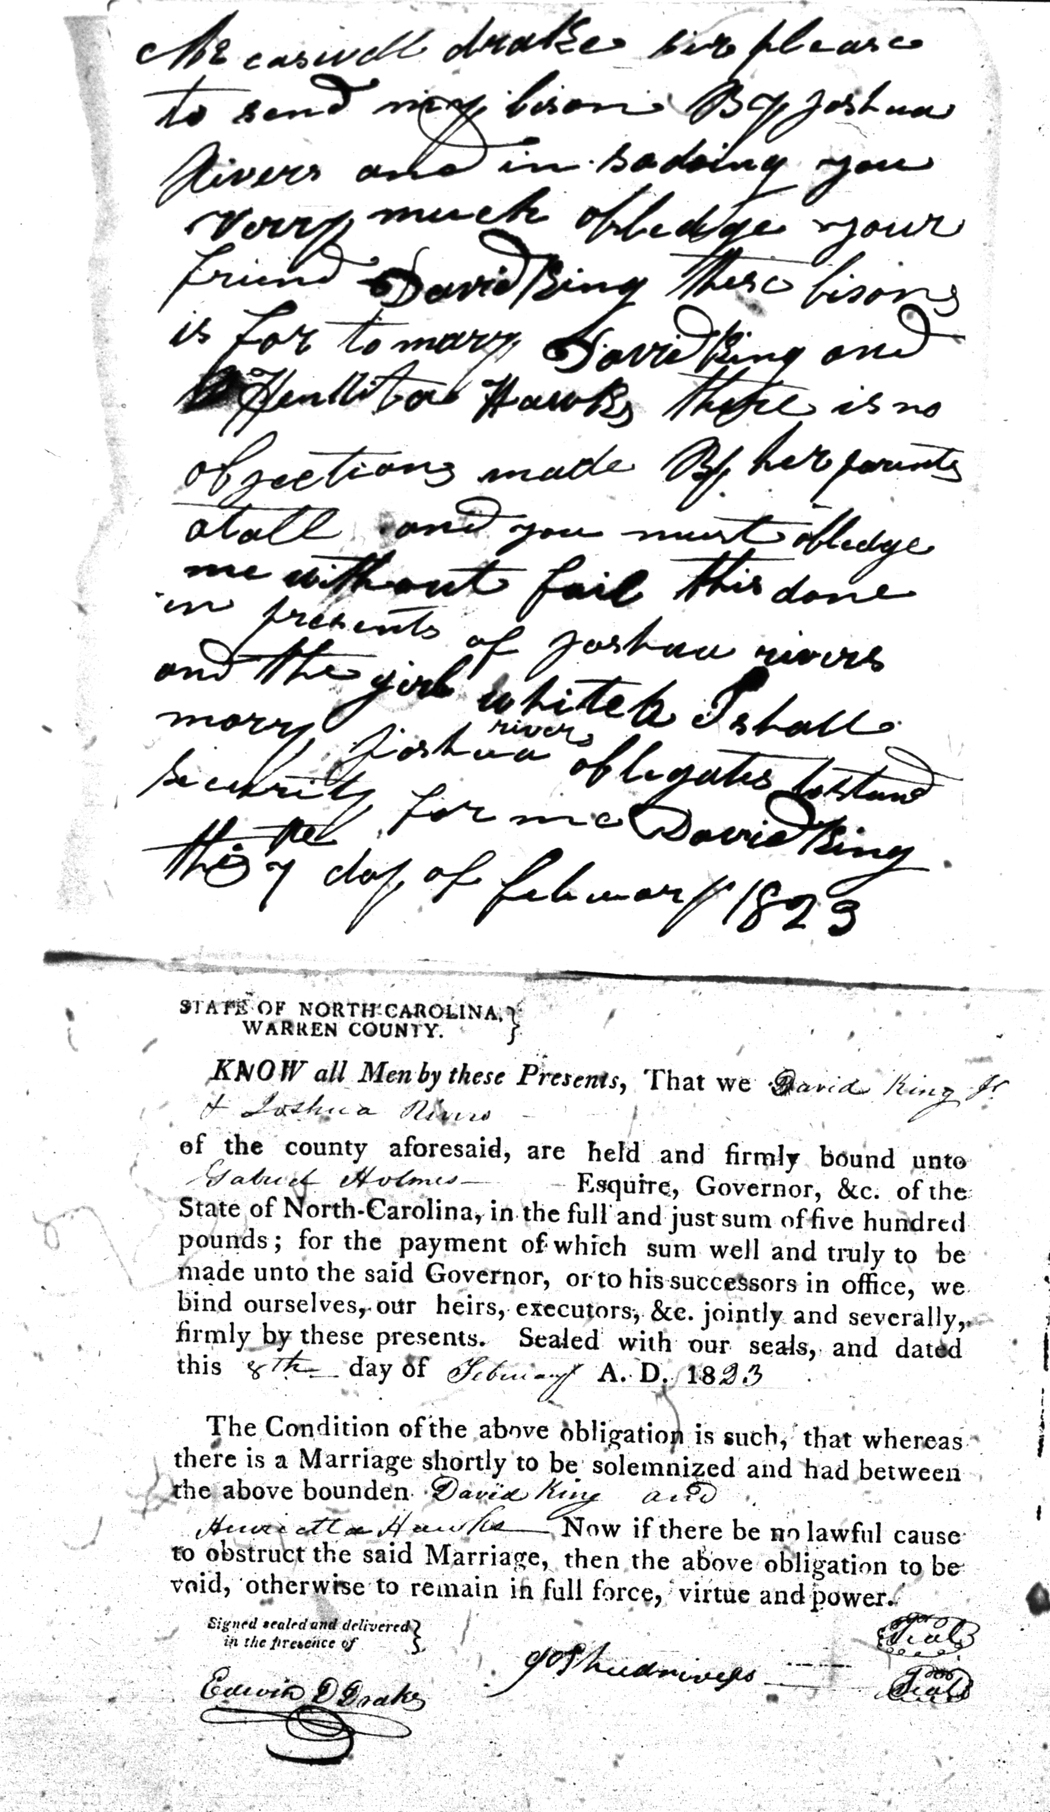 Mr caswell drake sir please
to send my bison By joshua
Rivers and in sodoing you
verry much obledge your
friend David King these bisons
is for to marry David King and
Henllita Hawks there is no
objections made By her parints
atall and you must obledge
me without fail this done
in presents of joshua rivers
and the girl which I shall
marry joshua rivers oblegates tostand
security for me David King
this the 7 day of february 1823
STATE OF NORTH-CAROLINA, }
WARREN COUNTY. }
KNOW all Men by these Presents, That we David King Jr
& Joshua Rivers
of the county aforesaid, are held and firmly bound unto
Gabriel Holmes Esquire, Governor, &c. of the
State of North-Carolina, in the full and just sum of five hundred
pounds; for the payment of which sum well and truly to be
made unto the said Governor, or to his successors in office, we
bind ourselves, our heirs, executors, &c. jointly and severally,
firmly by these presents. Sealed with our seals, and dated
this 8th day of February A. D. 1823
The Condition of the above obligation is such, that whereas
there is a Marriage shortly to be solemnized and had between
the above bounden David King and
Henrietta Hawks Now if there be no lawful cause
to obstruct the said Marriage, then the above obligation to be
void, otherwise to remain in full force, virtue and power.
Signed sealed and delivered }
in the presence of }
Seal
joshua rivers
Seal
Edwin D Drake